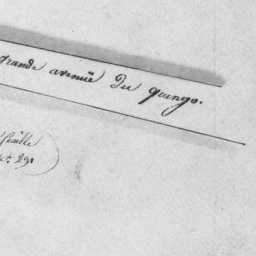 grande avenüe du quingo.
feuille
n.º 291